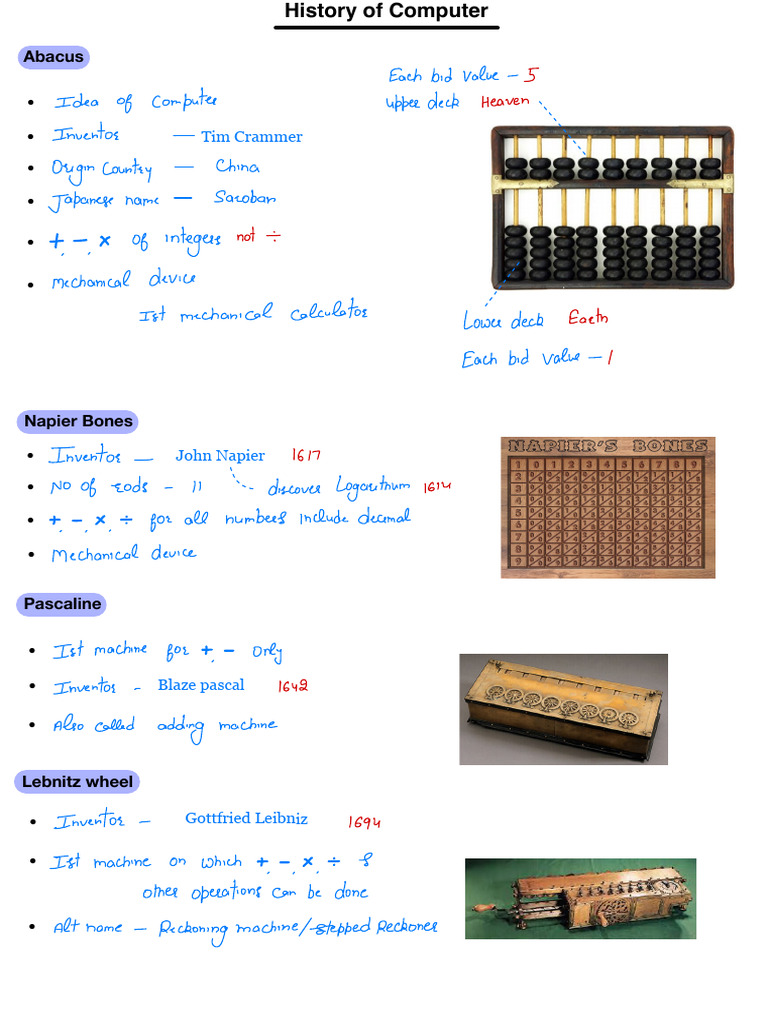 History of Computer
Abacus
Each bid value - 5
upper deck Heaven
• Idea of Computer
• Inventor — Tim Crammer
• Origin Country — China
• Japanese name — Saroban
• +, -, × of integers not ÷
• Mechanical device
Ist mechanical calculator
Lower deck Earth
Each bid value - 1
Napier Bones
• Inventor — John Napier 1617
• No of rods - 11 discover Logarithum 1614
• +, -, ×, ÷ for all numbers include decimal
• Mechanical device
NAPIER'S BONES
Pascaline
• Ist machine for +, - only
• Inventor - Blaze pascal 1642
• Also called adding machine
Lebnitz wheel
• Inventor - Gottfried Leibniz 1694
• Ist machine on which +, -, ×, ÷ &
other operations can be done
• Alt name - Reckoning machine/stepped Reckoner